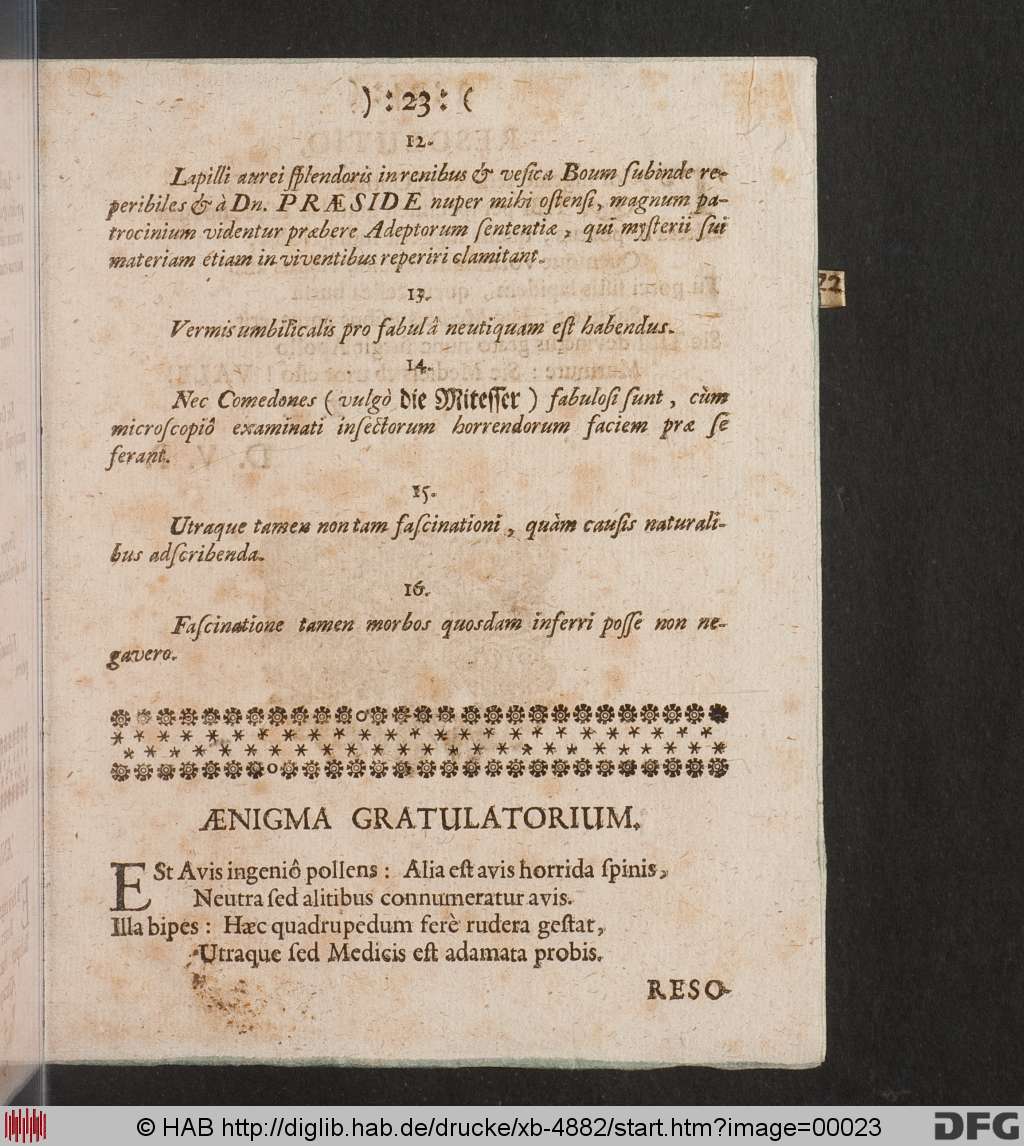 ) : 23 : (
12.
Lapilli aurei ſplendoris in renibus & veſica Boum ſubinde re-
peribiles & à Dn. PRÆSIDE nuper mihi oſtenſi, magnum pa-
trocinium videntur præbere Adeptorum ſententiæ, qui myſterii ſui
materiam etiam in viventibus reperiri clamitant.
13.
Vermis umbilicalis pro fabulâ neutiquam eſt habendus.
14.
Nec Comedones (vulgò die Miteſſer) fabuloſi ſunt, cùm
microſcopiô examinati inſectorum horrendorum faciem præ ſe
ferant.
15.
Utraque tamen non tam faſcinationi, quàm cauſis naturali-
bus adſcribenda.
16.
Faſcinatione tamen morbos quosdam inferri poſſe non ne-
gavero.
ÆNIGMA GRATULATORIUM.
ESt Avis ingeniô pollens: Alia eſt avis horrida ſpinis,
Neutra ſed alitibus connumeratur avis.
Illa bipes: Hæc quadrupedum ferè rudera geſtat,
Utraque ſed Medicis eſt adamata probis.
RESO-
22
© HAB http://diglib.hab.de/drucke/xb-4882/start.htm?image=00023
DFG